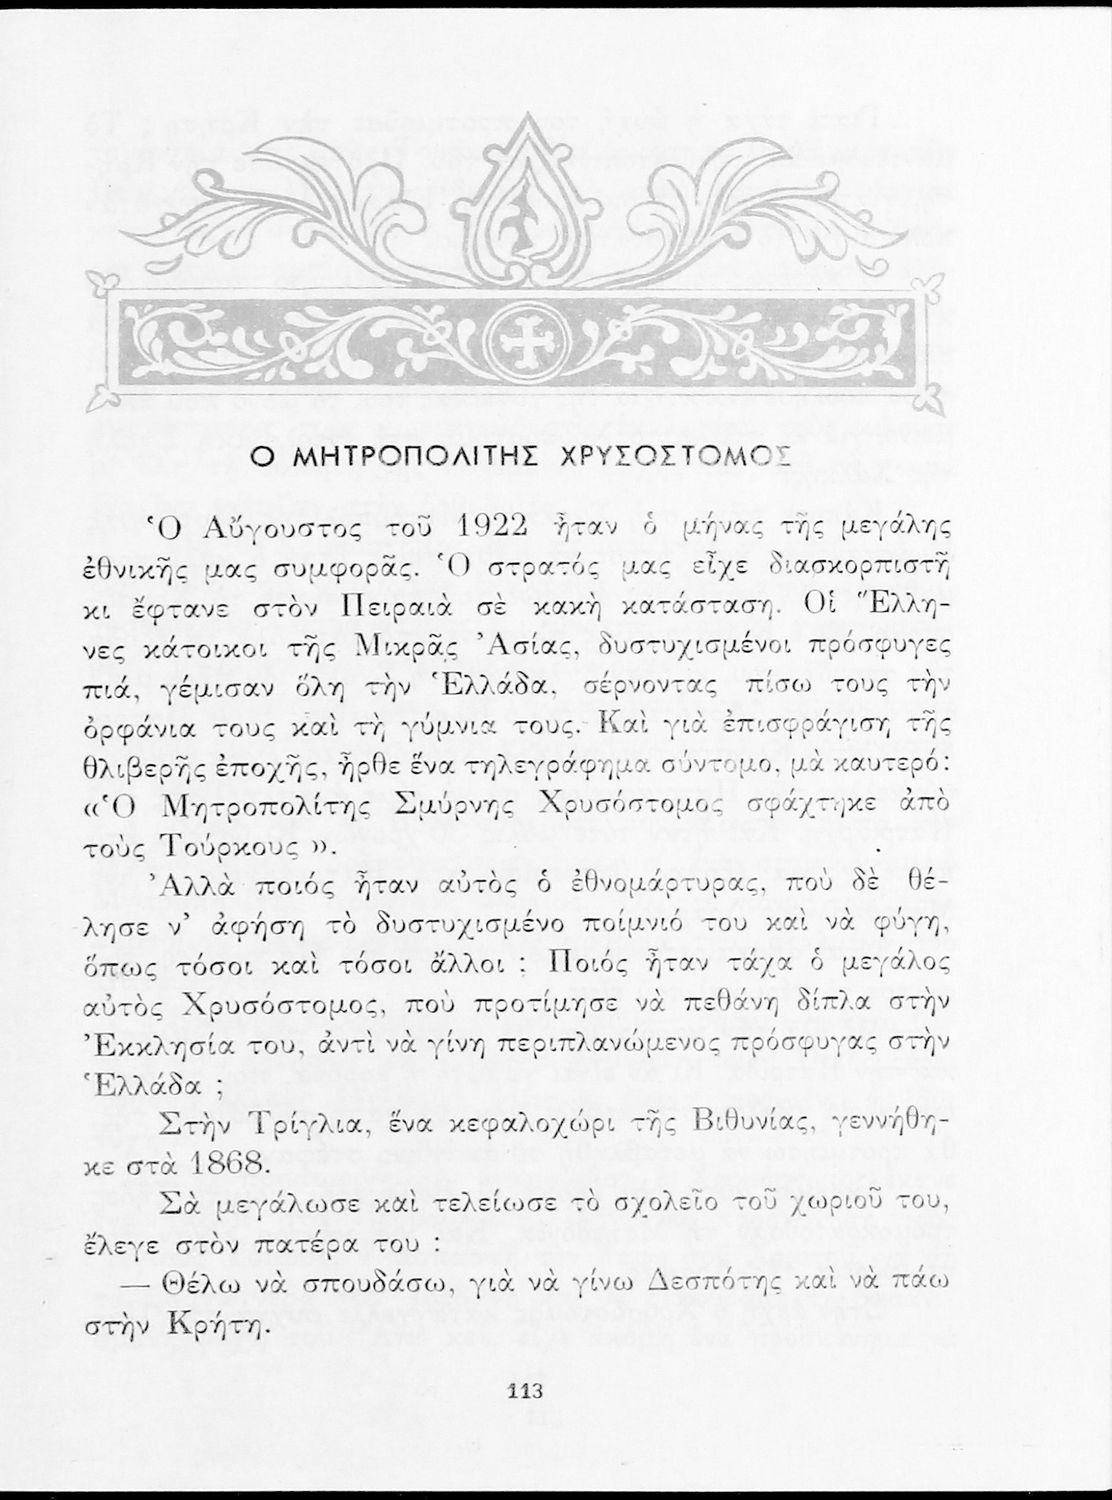 Ο ΜΗΤΡΟΠΟΛΙΤΗΣ ΧΡΥΣΟΣΤΟΜΟΣ
Ὁ Αὔγουστος τοῦ 1922 ἦταν ὁ μήνας τῆς μεγάλης
ἐθνικῆς μας συμφορᾶς. Ὁ στρατός μας εἶχε διασκορπιστῆ
κι ἔφτανε στὸν Πειραιὰ σὲ κακὴ κατάσταση. Οἱ Ἕλλη-
νες κάτοικοι τῆς Μικρᾶς Ἀσίας, δυστυχισμένοι πρόσφυγες
πιά, γέμισαν ὅλη τὴν Ἑλλάδα, σέρνοντας πίσω τους τὴν
ὀρφάνια τους καὶ τὴ γύμνια τους. Καὶ γιὰ ἐπισφράγιση τῆς
θλιβερῆς ἐποχῆς, ἦρθε ἕνα τηλεγράφημα σύντομο, μὰ καυτερό:
«Ὁ Μητροπολίτης Σμύρνης Χρυσόστομος σφάχτηκε ἀπὸ
τοὺς Τούρκους ».
Ἀλλὰ ποιός ἦταν αὐτὸς ὁ ἐθνομάρτυρας, ποὺ δὲ θέ-
λησε ν’ ἀφήση τὸ δυστυχισμένο ποίμνιό του καὶ νὰ φύγη,
ὅπως τόσοι καὶ τόσοι ἄλλοι ; Ποιός ἦταν τάχα ὁ μεγάλος
αὐτὸς Χρυσόστομος, ποὺ προτίμησε νὰ πεθάνη δίπλα στὴν
Ἐκκλησία του, ἀντὶ νὰ γίνη περιπλανώμενος πρόσφυγας στὴν
Ἑλλάδα ;
Στὴν Τρίγλια, ἕνα κεφαλοχώρι τῆς Βιθυνίας, γεννήθη-
κε στὰ 1868.
Σὰ μεγάλωσε καὶ τελείωσε τὸ σχολεῖο τοῦ χωριοῦ του,
ἔλεγε στὸν πατέρα του :
— Θέλω νὰ σπουδάσω, γιὰ νὰ γίνω Δεσπότης καὶ νὰ πάω
στὴν Κρήτη.
113